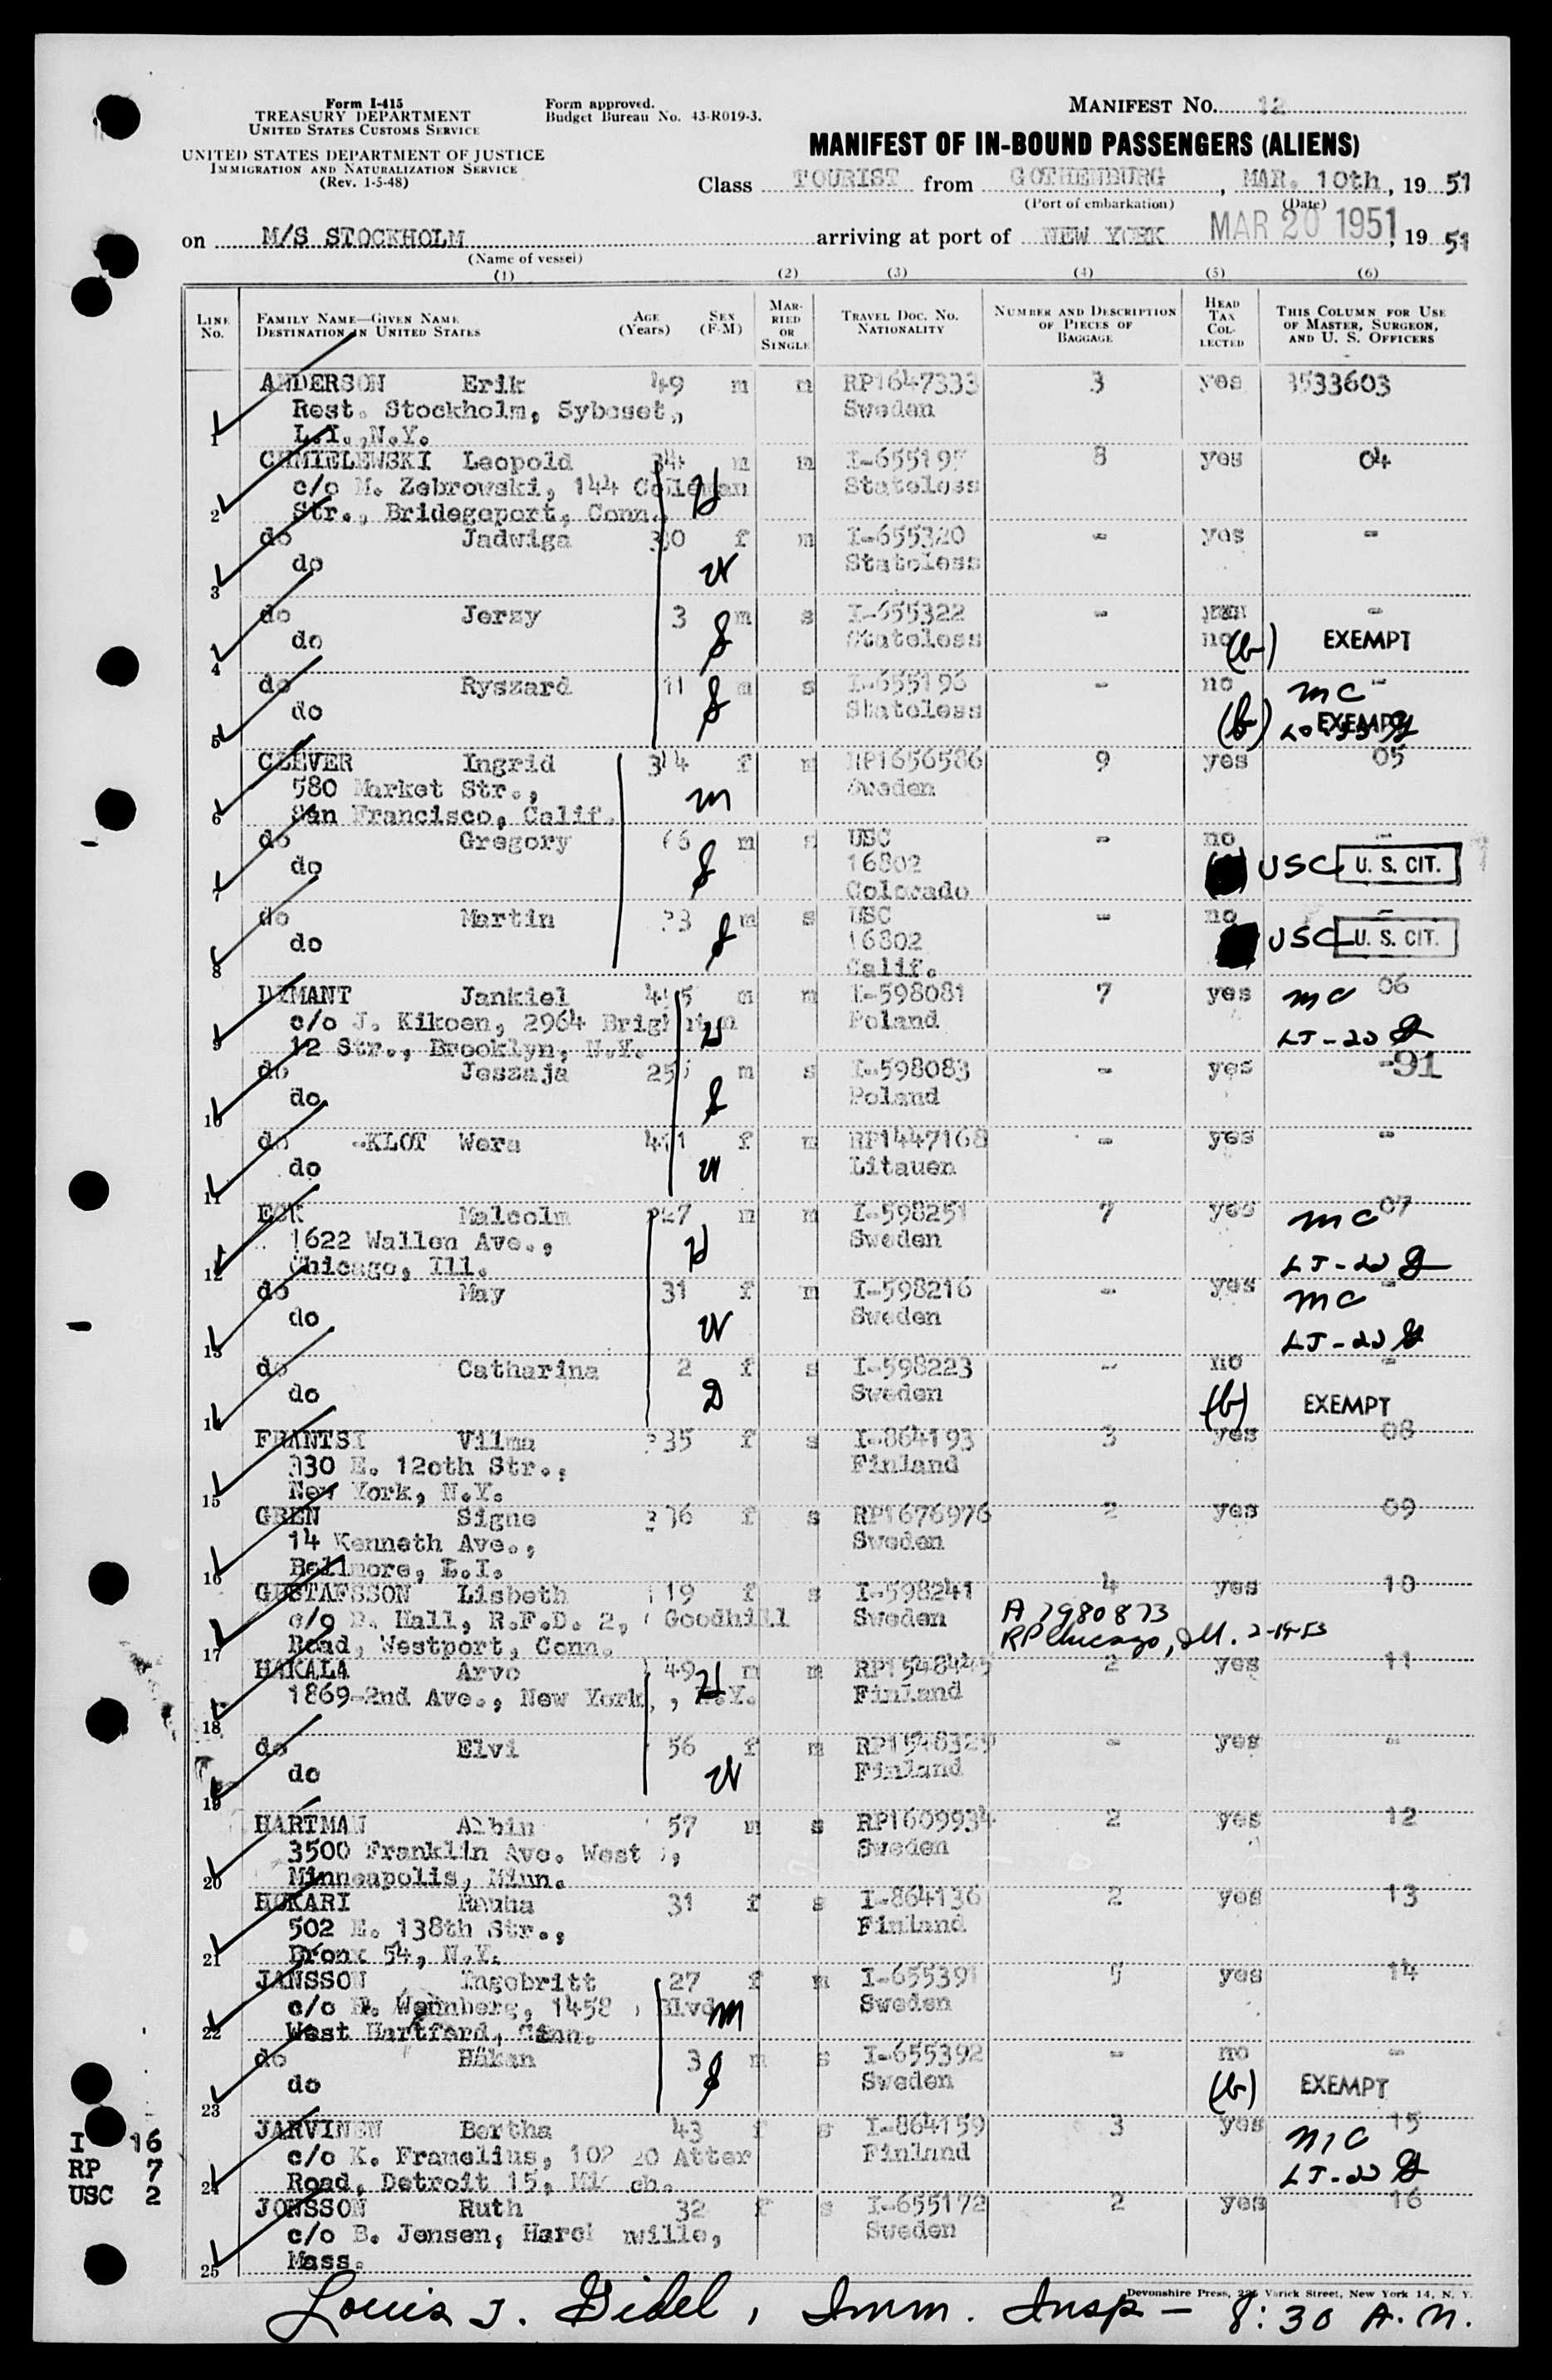 Form I-415
TREASURY DEPARTMENT
UNITED STATES CUSTOMS SERVICE
UNITED STATES DEPARTMENT OF JUSTICE
IMMIGRATION AND NATURALIZATION SERVICE
(Rev. 1-5-48)
Form approved.
Budget Bureau No. 43-R019-3.
MANIFEST NO. 12
MANIFEST OF IN-BOUND PASSENGERS (ALIENS)
Class TOURIST from GOTHENBURG, MAR. 10th, 19 51
(Port of embarkation) (Date)
on M/S STOCKHOLM arriving at port of NEW YORK MAR 20 1951, 19 51
(Name of vessel)
(1) (2) (3) (4) (5) (6)
LINE NO. FAMILY NAME—GIVEN NAME DESTINATION IN UNITED STATES AGE (Years) SEX (F-M) MARRIED OR SINGLE TRAVEL DOC. NO. NATIONALITY NUMBER AND DESCRIPTION OF PIECES OF BAGGAGE HEAD TAX COLLECTED THIS COLUMN FOR USE OF MASTER, SURGEON, AND U. S. OFFICERS
ANDERSON Erik 49 m m RP1647333 3 yes 3533603
Rest. Stockholm, Syboset, Sweden
1 L.I.,N.Y.
CHMIELEWSKI Leopold 34 m m I-655197 8 yes 04
c/o M. Zebrowski, 144 Coleman H Stateless
2 Str., Bridegeport, Conn.
do Jadwiga 30 f m I-655320 - yes -
do W Stateless
3
do Jerzy 3 m s I-655322 - -
do S Stateless no (b) EXEMPT
4
do Ryszard 11 m s I-655196 - no mc -
do S Stateless (b) EXEMPT
5
CLEVER Ingrid 34 f m RP1656586 9 yes 05
580 Market Str., m Sweden
6 San Francisco, Calif.
do Gregory 6 m s USC - no -
do S 16802 USC U. S. CIT.
7 Colorado
do Martin 3 m s USC - no -
do S 16802 USC U. S. CIT.
8 Calif.
DYMANT Jankiel 45 m m I-598081 7 yes mc 06
c/o J. Kikoen, 2964 Brighton H Poland LJ-20
9 12 Str., Brooklyn, N.Y.
do Jeszaja 25 m s I-598083 - yes -91
do S Poland
10
do -KLOT Wera 41 f m RP1447168 - yes -
do W Litauen
11
ECK Malcolm 27 m m I-598251 7 yes mc 07
1622 Wallen Ave., H Sweden
12 Chicago, Ill. LJ-20
do May 31 f m I-598216 - yes mc -
do W Sweden LJ-20
13
do Catharina 2 f s I-598223 - no -
do D Sweden (b) EXEMPT
14
FRANTSI Vilma 35 f s I-864193 3 yes 08
330 E. 120th Str., Finland
15 New York, N.Y.
GREN Signe 36 f s RP1676976 2 yes 09
14 Kenneth Ave., Sweden
16 Bellmore, L.I.
GUSTAFSSON Lisbeth 19 f s I-598241 4 yes 10
c/o D. Hall, R.F.D. 2, Goodhill Sweden A 7980873
17 Road, Westport, Conn. RP Chicago, Ill. 2-19-53
HAKALA Arvo 49 m m RP1548445 2 yes 11
1869-2nd Ave., New York, N.Y. H Finland
18
do Elvi 56 f m RP1548329 - yes -
do W Finland
19
HARTMAN Albin 57 m s RP1609934 2 yes 12
3500 Franklin Ave. West, Sweden
20 Minneapolis, Minn.
HUKARI Rauha 31 f s I-864136 2 yes 13
502 E. 138th Str., Finland
21 Bronx 54, N.Y.
JANSSON Ingebritt 27 f m I-655391 5 yes 14
c/o H. Wennberg, 1458 Blvd m Sweden
22 West Hartford, Conn.
do Håkan 3 m s I-655392 - no -
do S Sweden (b) EXEMPT
23
JARVINEN Bertha 43 f s I-864159 3 yes mc 15
c/o K. Framelius, 10220 Atter Finland
24 Road, Detroit 15, Mich. LJ-20
JONSSON Ruth 32 f s I-655172 2 yes 16
c/o B. Jensen, Sweden
25 Mass.
I 16
RP 7
USC 2
Devonshire Press, 225 Varick Street, New York 14, N. Y.
Louis J. Gidel, Imm. Insp - 8:30 A.M.